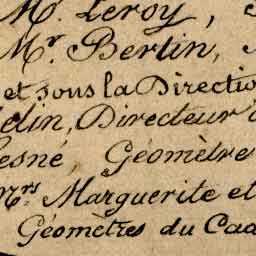 M. Leroy,
Mr Bertin,
et sous la Directio
elin, Directeur
esné, Géomètre
Mrs Marguerite et
Géomètres du Cad